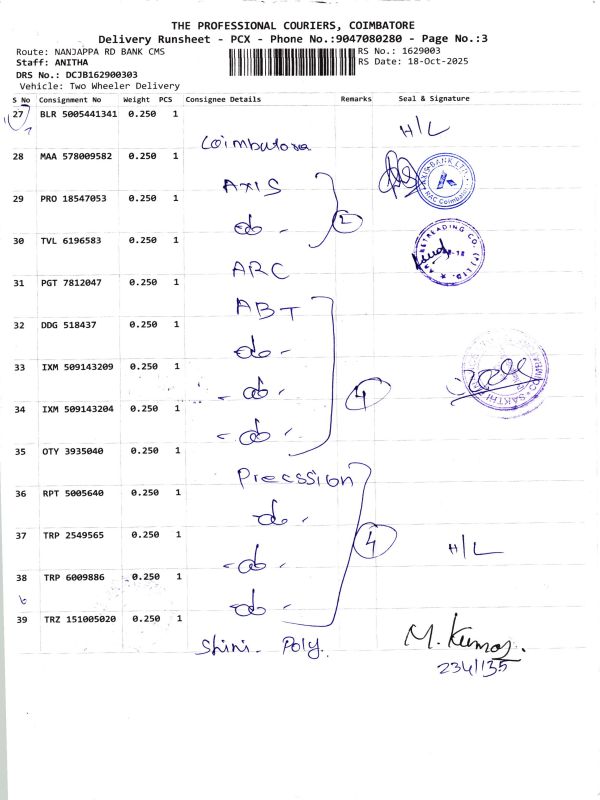 THE PROFESSIONAL COURIERS, COIMBATORE
Delivery Runsheet - PCX - Phone No.:9047080280 - Page No.:3
Route: NANJAPPA RD BANK CMS RS No.: 1629003
Staff: ANITHA RS Date: 18-Oct-2025
DRS No.: DCJB162900303
Vehicle: Two Wheeler Delivery
S No Consignment No Weight PCS Consignee Details Remarks Seal & Signature
27 BLR 5005441341 0.250 1 H/L
Coimbatore
28 MAA 578009582 0.250 1 AXIS BANK LTD. Coimbatore
AXIS
29 PRO 18547053 0.250 1
do - 2
30 TVL 6196583 0.250 1 TRADING CO. (P) LTD.
ARC
31 PGT 7812047 0.250 1
ABT
32 DDG 518437 0.250 1
do -
33 IXM 509143209 0.250 1 SAKTHI
- do - 4
34 IXM 509143204 0.250 1
- do -
35 OTY 3935040 0.250 1
Precssion
36 RPT 5005640 0.250 1
- do -
37 TRP 2549565 0.250 1 4 H/L
- do -
38 TRP 6009886 0.250 1
- do -
39 TRZ 151005020 0.250 1 M. Kumar.
Shini. Poly. 234/135